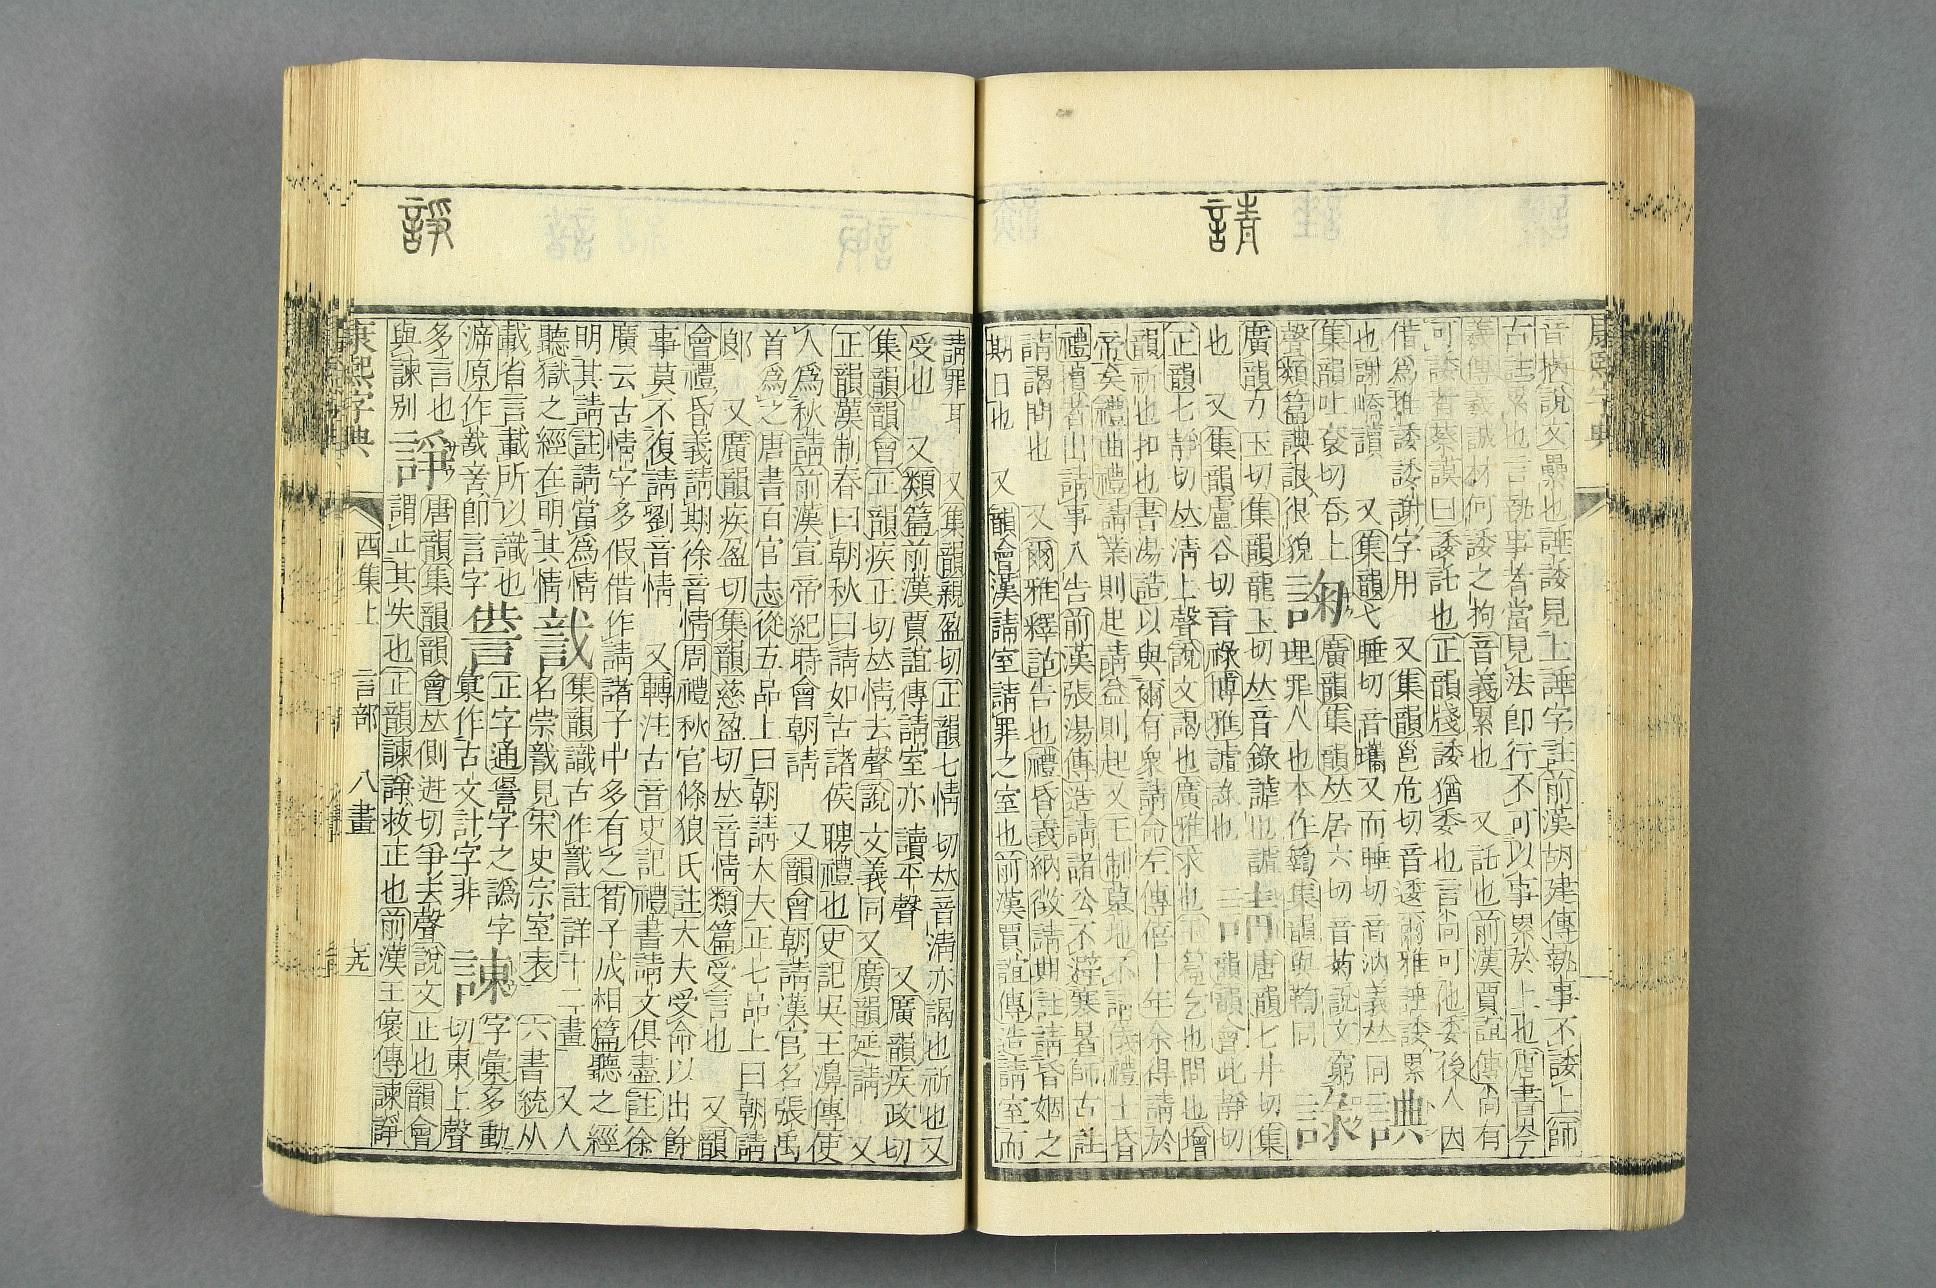 請
音柄說文纍也諈諉見上諈字註前漢胡建傳執事不諉上師
古註累也言執事者當見法卽行不可以事累於上也唐書
義傳義誠材何諉之拘音義累也 又託也前漢賈誼傳尚有
可諉者蔡謨曰諉託也正韻牋諉猶委也言尚可他委後人因
借爲推諉諉謝字用 又集韻邕危切音逶爾雅諈諉累
也謝嶠讀 又集韻七睡切音 又而睡切音汭義𠀤同 諆
集韻吐袞切吞上
聲類篇 詪很貌 諊 廣韻集韻𠀤居六切音菊說文窮
理罪人也本作𥷚集韻與鞫同 㖨
廣韻力玉切集韻龍玉切𠀤音錄謯也謯
也 又集韻盧谷切音祿博雅謯 也 請 唐韻七井切集
韻韻會此靜切
正韻七靜切𠀤淸上聲說文謁也廣雅求也 篇乞也問也增
韻祈也扣也書湯誥以與爾有衆請命左傳僖十年余得請於
帝矣禮曲禮請業則起請益則起又王制墓地不請儀禮士昏
禮擯者出請事入告前漢張湯傳造請諸公不避寒暑師古註
請謁問也 又爾雅釋詁告也禮昏義納徵請期註請昏姻之
期日也 又韻會漢請室請罪之室也前漢賈誼傳造請室而
請罪耳 又集韻親盈切正韻七情切𠀤音淸亦謁也祈也又
受也 又類篇前漢賈誼傳請室亦讀平聲 又廣韻疾政切
集韻韻會正韻疾正切𠀤情去聲說文義同又廣韻延請 又
正韻漢制春曰朝秋曰請如古諸侯聘禮也史記吳王濞傳使
人爲秋請前漢宣帝紀時會朝請 又韻會朝請漢官名張禹
首爲之唐書百官志從五品上曰朝請大夫正七品上曰朝請
郞 又廣韻疾盈切集韻慈盈切𠀤音情類篇受言也 又韻
會禮昏義請期徐音情周禮秋官條狼氏註大夫受命以出餘
事莫不復請劉音情 又轉注古音史記禮書請文俱盡註徐
廣云古情字多假借作請諸子中多有之荀子成相篇聽之經
明其請註請當爲情
聽獄之經在明其情 䛊 集韻識古作䛊註詳十二畫 又人
名崇䛊見宋史宗室表
載省言載所以識也
㴑原作䛊叢卽言字 䛘 正字通諐字之譌字
彙作古文計字非 諌 六書統从
字彙多動
切東上聲
多言也
與諫別 諍 唐韻集韻韻會𠀤側迸切爭去聲說文止也韻會
謂止其失也正韻諫諍救正也前漢王襃傳諫諍
諍
康熙字典
酉集上 言部 八畫